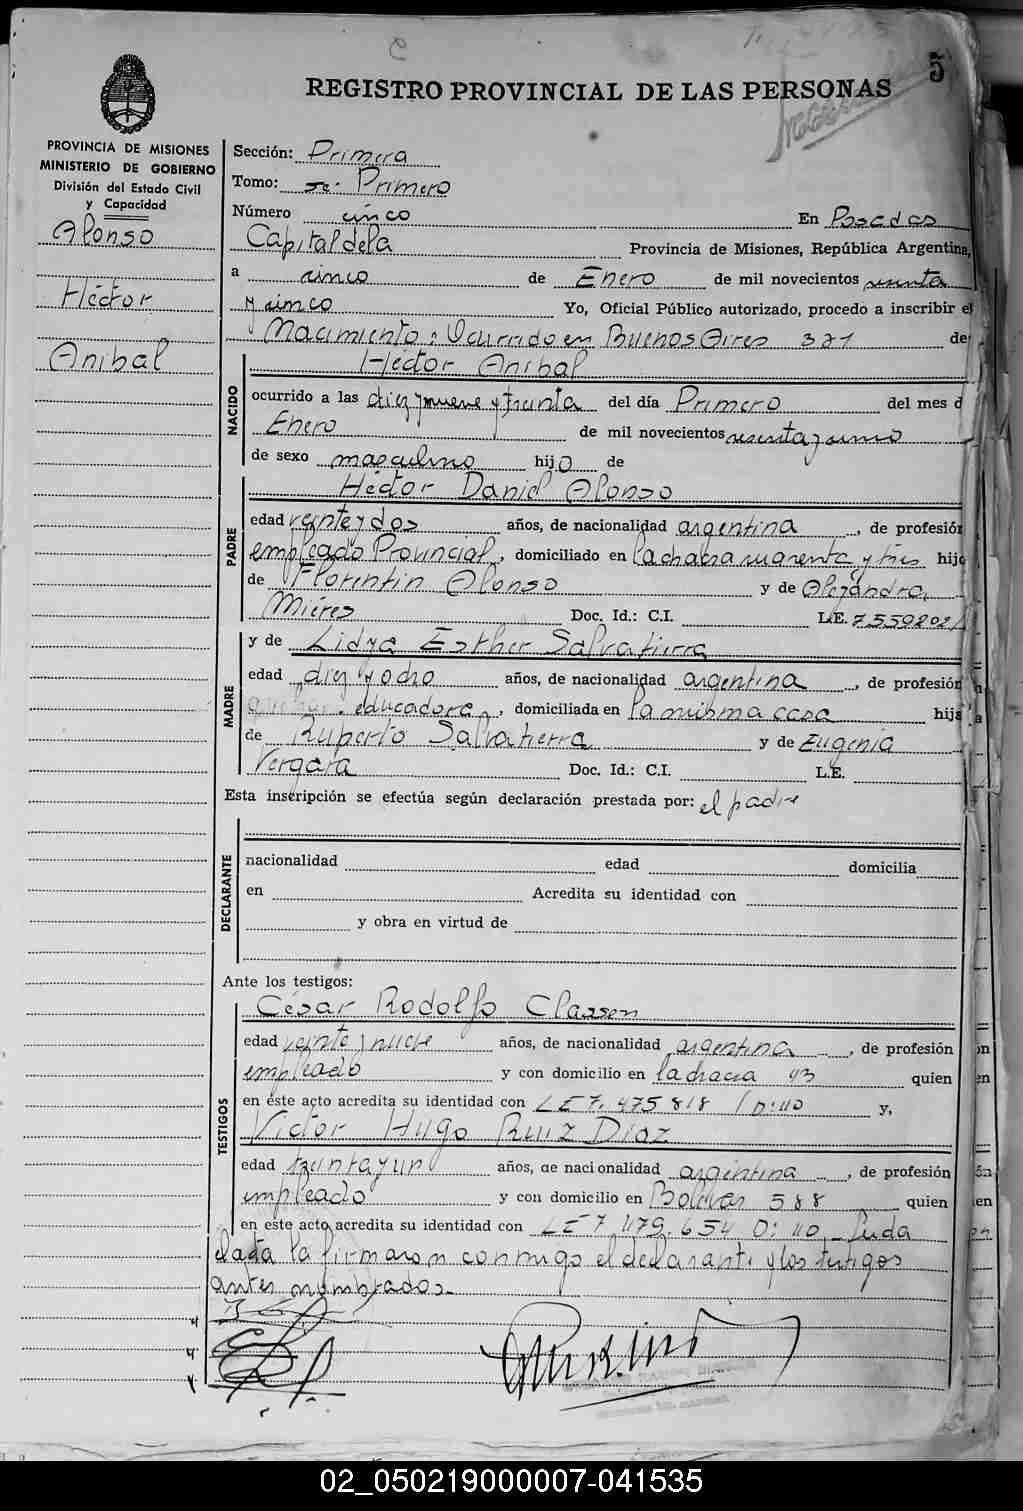 5
REGISTRO PROVINCIAL DE LAS PERSONAS
PROVINCIA DE MISIONES
MINISTERIO DE GOBIERNO
División del Estado Civil
y Capacidad
Alonso
Héctor
Anibal
Sección: Primera
Tomo: Primero
Número cinco En Posadas
Capital de la Provincia de Misiones, República Argentina,
a cinco de Enero de mil novecientos sesenta
y cinco Yo, Oficial Público autorizado, procedo a inscribir el
Nacimiento: Ocurrido en Buenos Aires 321 de
Héctor Anibal
NACIDO
ocurrido a las diez y nueve y treinta del día Primero del mes d
Enero de mil novecientos sesenta y cinco
de sexo masculino hijo de
Héctor Daniel Alonso
PADRE
edad veinte y dos años, de nacionalidad argentina, de profesión
empleado Provincial, domiciliado en la chacra cuarenta y tres hijo
de Florentin Alonso y de Alejandra
Mieres Doc. Id.: C.I. L.E. 7559202
y de Lidya Esther Salvatierra
MADRE
edad diez y ocho años, de nacionalidad argentina, de profesión
educadora, domiciliada en la misma casa hija
de Ruperto Salvatierra y de Eugenia
Vergara Doc. Id.: C.I. L.E.
Esta inscripción se efectúa según declaración prestada por: el padre
DECLARANTE
nacionalidad edad domicilia
en Acredita su identidad con
y obra en virtud de
Ante los testigos:
César Rodolfo Classen
TESTIGOS
edad veinte y nueve años, de nacionalidad argentina, de profesión
empleado y con domicilio en la chacra 43 quien
en éste acto acredita su identidad con LE 7.475818 D:40 y,
Victor Hugo Ruiz Diaz
edad treinta y un años, de nacionalidad argentina, de profesión
empleado y con domicilio en Bolivar 588 quien
en este acto acredita su identidad con LE 7.479.654 D:40 Leida
el acta la firmaron conmigo el declarante y los testigos
antes nombrados.
02_050219000007-041535